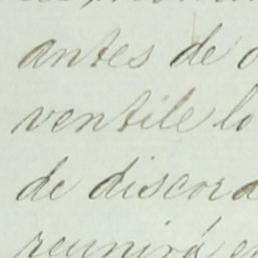 antes de
ventile lo
de discord
reunirá en